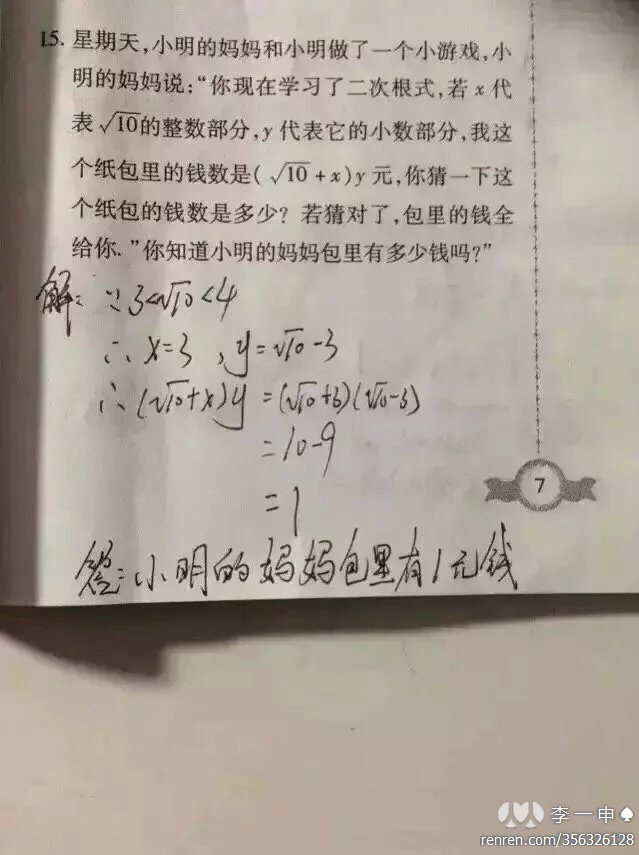 15. 星期天,小明的妈妈和小明做了一个小游戏,小
明的妈妈说:“你现在学习了二次根式,若 x 代
表√10的整数部分,y 代表它的小数部分,我这
个纸包里的钱数是(√10+x)y 元,你猜一下这
个纸包的钱数是多少? 若猜对了,包里的钱全
给你.”你知道小明的妈妈包里有多少钱吗?”
解: ∵3<√10<4
∴ x=3 , y=√10-3
∴ (√10+x)y =(√10+3)(√10-3)
=10-9
=1
7
答:小明的妈妈包里有1元钱
李一申♠
renren.com/356326128